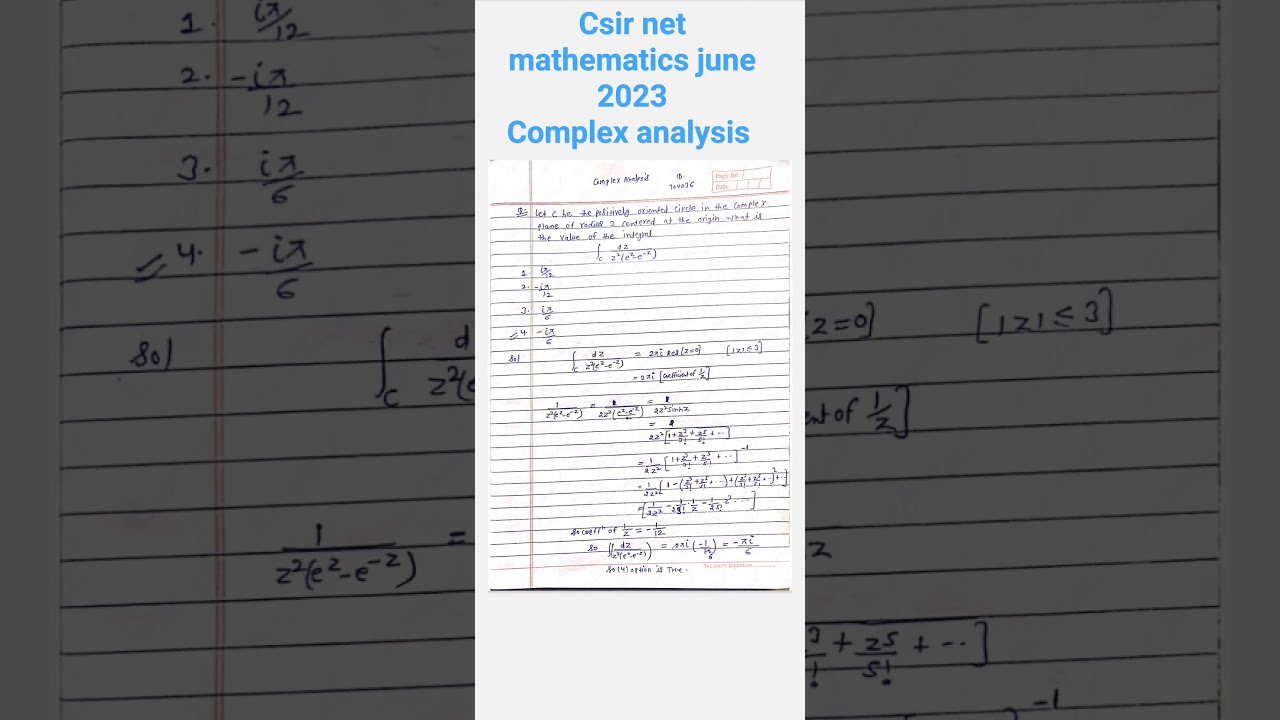 Csir net
mathematics june
2023
Complex analysis
Complex Analysis
ID:
704036
Page No.
Date
Q: Let C be the positively oriented circle in the complex
plane of radius 3 centered at the origin. What is
the value of the integral
∫_C dz/z²(e^z-e^-z)
1. iπ/12
2. -iπ/12
3. iπ/6
4. -iπ/6
Sol ∫_C dz/z²(e^z-e^-z) = 2πi Res(z=0) [|z| ≤ 3]
= 2πi [coefficient of 1/z]
1/z²(e^z-e^-z) = 1/2z²(e^z-e^-z)/2 = 1/2z² sinhz
2z²[1+z³/3!+z⁵/5!+...]
= 1/2z² [1+z³/3!+z⁵/5!+...]^-1
= 1/2z² [1-(z³/3!+z⁵/5!+...)+(z³/3!+z⁵/5!+...)²+...]
So coeffⁿ of 1/z = -1/12
So ∫(dz/z²(e^z-e^-z)) = 2πi(-1/12) = -πi/6
So (4) option is True.
Teacher's Signature
1. iπ/12
2. -iπ/12
3. iπ/6
4. -iπ/6
Sol
∫_C d
z²(e
1/z²(e^z-e^-z) =
z=0) [|z| ≤ 3]
ent of 1/z]
z
3/! + z5/5! + ...]
-1